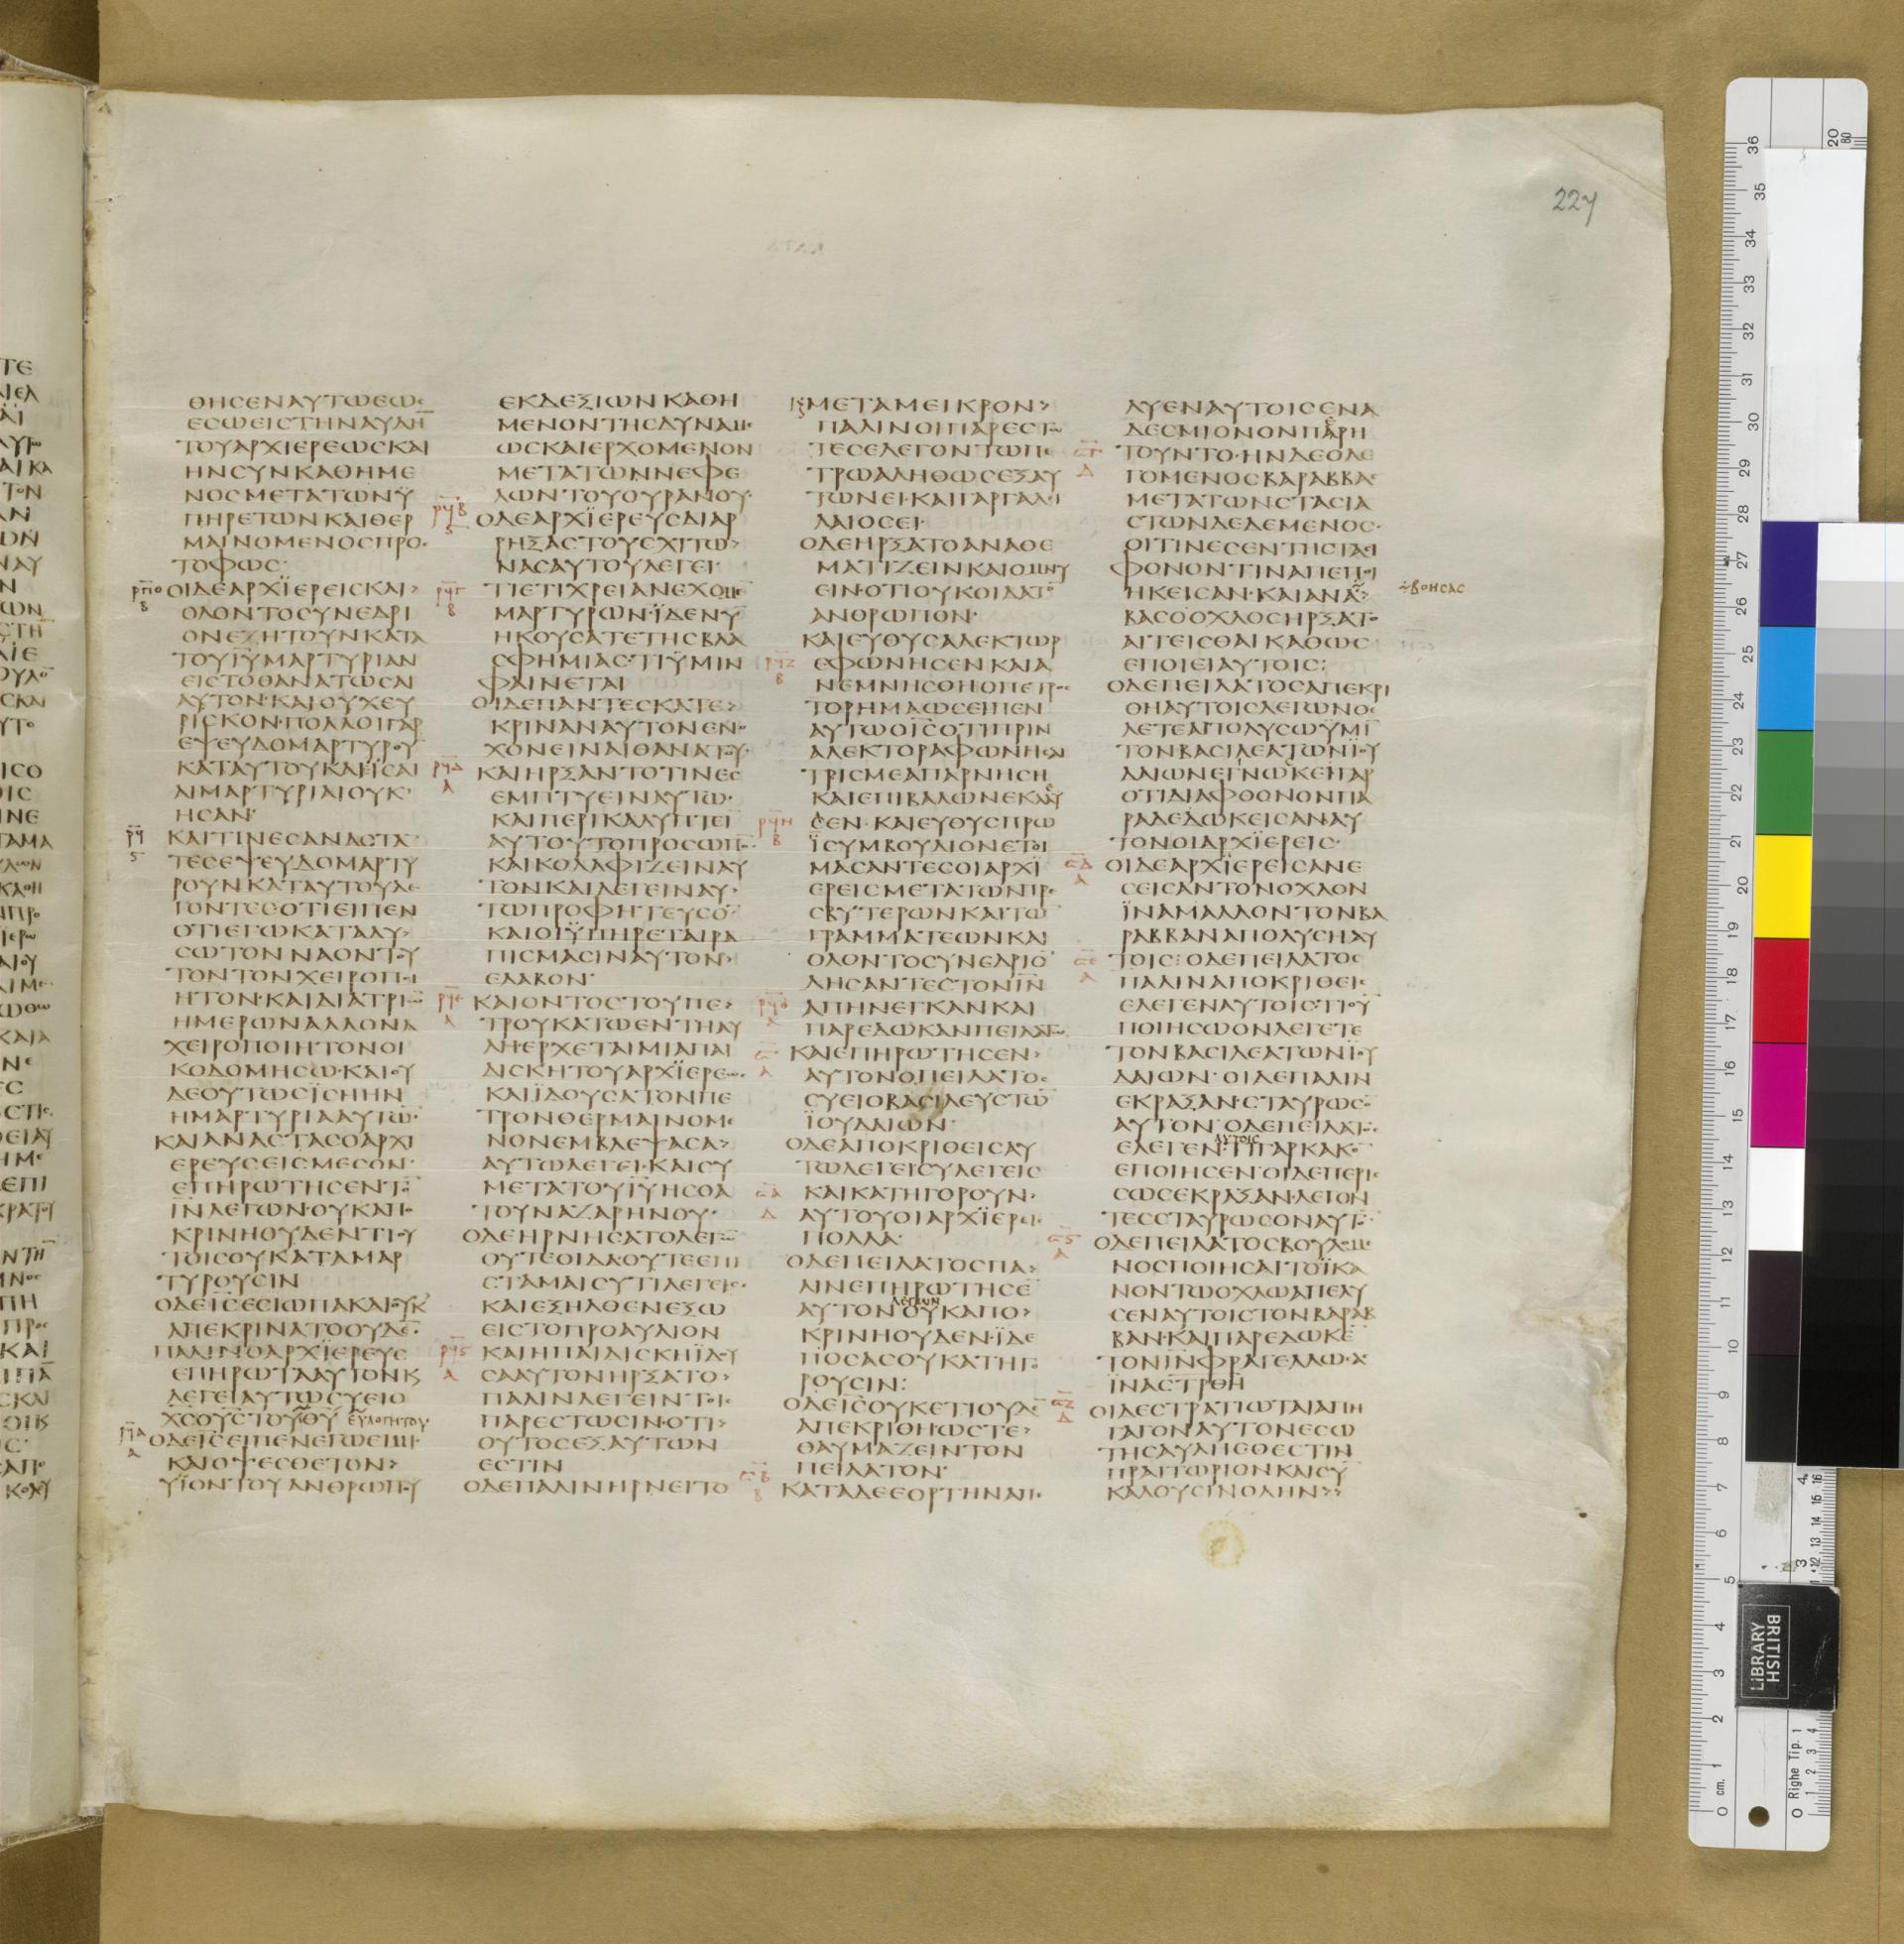 227
ΘΗCΕΝΑΥΤΩΕΩC
ΕCΩΕΙCΤΗΝΑΥΛΗ̅
ΤΟΥΑΡΧΙΕΡΕΩCΚΑΙ
ΗΝCΥΝΚΑΘΗΜΕ
ΝΟCΜΕΤΑΤΩΝΫ
ΠΗΡΕΤΩΝΚΑΙΘΕΡ
ΜΑΙΝΟΜΕΝΟCΠΡΟC
ΤΟΦΩC
ΟΙΔΕΑΡΧΪΕΡΕΙCΚΑΙ>
ΟΛΟΝΤΟCΥΝΕΔΡΙ
ΟΝΕΖΗΤΟΥΝΚΑΤΑ
ΤΟΥΙ̅Υ̅ΜΑΡΤΥΡΙΑΝ
ΕΙCΤΟΘΑΝΑΤΩCΑΙ
ΑΥΤΟΝ·ΚΑΙΟΥΧΕΥ
ΡΙCΚΟΝ·ΠΟΛΛΟΙΓΑΡ
ΕΨΕΥΔΟΜΑΡΤΥΡΟΥ
ΚΑΤΑΥΤΟΥΚΑΙΕΙCΑΙ
ΑΙΜΑΡΤΥΡΙΑΙΟΥΚ
ΗCΑΝ·
ΚΑΙΤΙΝΕCΑΝΑCΤΑ
ΤΕCΕΨΕΥΔΟΜΑΡΤΥ
ΡΟΥΝΚΑΤΑΥΤΟΥΛΕ
ΓΟΝΤΕCΟΤΙΕΙΠΕΝ
ΟΤΙΕΓΩΚΑΤΑΛΥ>
CΩΤΟΝΝΑΟΝΤΟΥ
ΤΟΝΤΟΝΧΕΙΡΟΠΟΙ
ΗΤΟΝ·ΚΑΙΔΙΑΤΡΙΩ̅
ΗΜΕΡΩΝΑΛΛΟΝΑ
ΧΕΙΡΟΠΟΙΗΤΟΝΟΙ
ΚΟΔΟΜΗCΩ·ΚΑΙΟΥ
ΔΕΟΥΤΩCΪCΗΗΝ
ΗΜΑΡΤΥΡΙΑΑΥΤΩ̅
ΚΑΙΑΝΑCΤΑCΟΑΡΧΙ
ΕΡΕΥCΕΙCΜΕCΟΝ·
ΕΠΗΡΩΤΗCΕΝΤΟ̅
Ι̅Ν̅ΛΕΓΩΝ·ΟΥΚΑΠΟ
ΚΡΙΝΗΟΥΔΕΝΤΙΟΥ
ΤΟΙCΟΥΚΑΤΑΜΑΡ
ΤΥΡΟΥCΙΝ
ΟΔΕΙ̅C̅ΕCΙΩΠΑΚΑΙΟΥΚ
ΑΠΕΚΡΙΝΑΤΟΟΥΔΕ̅
ΠΑΛΙΝΟΑΡΧΪΕΡΕΥC
ΕΠΗΡΩΤΑΑΥΤΟΝΚ
ΛΕΓΕΙΑΥΤΩCΥΕΙΟ
Χ̅C̅ΟΥCΤΟΥΘ̅Υ̅ ΕΥΛΟΓΗΤΟΥ
ΟΔΕΙ̅C̅ΕΙΠΕΝΕΓΩΕΙΜΙ
ΚΑΙΟΨΕCΘΕΤΟΝ>
ΥΪΟΝΤΟΥΑΝΘΡΩΠΟΥ
ΕΚΔΕΞΙΩΝΚΑΘΗ
ΜΕΝΟΝΤΗCΔΥΝΑΜ
ΩCΚΑΙΕΡΧΟΜΕΝΟΝ
ΜΕΤΑΤΩΝΝΕΦΕ
ΛΩΝΤΟΥΟΥΡΑΝΟΥ·
ΟΔΕΑΡΧΪΕΡΕΥCΔΙΑΡ
ΡΗΞΑCΤΟΥCΧΙΤΩ>
ΝΑCΑΥΤΟΥΛΕΓΕΙ
ΤΙΕΤΙΧΡΕΙΑΝΕΧΟΜΕ
ΜΑΡΤΥΡΩΝ·ΪΔΕΝΥ
ΗΚΟΥCΑΤΕΤΗCΒΛΑ
CΦΗΜΙΑC·ΤΙΫΜΙΝ
ΦΑΙΝΕΤΑΙ
ΟΙΔΕΠΑΝΤΕCΚΑΤΕ>
ΚΡΙΝΑΝΑΥΤΟΝΕΝΟ
ΧΟΝΕΙΝΑΙΘΑΝΑΤΟΥ·
ΚΑΙΗΡΞΑΝΤΟΤΙΝΕC
ΕΜΠΤΥΕΙΝΑΥΤΩ·
ΚΑΙΠΕΡΙΚΑΛΥΠΤΕΙ
ΑΥΤΟΥΤΟΠΡΟCΩΠΟ̅
ΚΑΙΚΟΛΑΦΙΖΕΙΝΑΥ
ΤΟΝΚΑΙΛΕΓΕΙΝΑΥ·
ΤΩΠΡΟΦΗΤΕΥCΟ̅
ΚΑΙΟΙΫΠΗΡΕΤΑΙΡΑ
ΠΙCΜΑCΙΝΑΥΤΟΝ>
ΕΛΑΒΟΝ·
ΚΑΙΟΝΤΟCΤΟΥΠΕ>
ΤΡΟΥΚΑΤΩΕΝΤΗΑΥ
ΛΗ·ΕΡΧΕΤΑΙΜΙΑΠΑΙ
ΔΙCΚΗΤΟΥΑΡΧΪΕΡΕΩC
ΚΑΙΪΔΟΥCΑΤΟΝΠΕ
ΤΡΟΝΘΕΡΜΑΙΝΟΜΕ
ΝΟΝΕΜΒΛΕΨΑCΑ>
ΑΥΤΩΛΕΓΕΙ·ΚΑΙCΥ
ΜΕΤΑΤΟΥΙ̅Υ̅ΗCΘΑ
ΤΟΥΝΑΖΑΡΗΝΟΥ·
ΟΔΕΗΡΝΗCΑΤΟΛΕΓΩ̅
ΟΥΤΕΟΙΔΑΟΥΤΕΕΠΙ
CΤΑΜΑΙCΥΤΙΛΕΓΕΙC·
ΚΑΙΕΞΗΛΘΕΝΕΞΩ
ΕΙCΤΟΠΡΟΑΥΛΙΟΝ
ΚΑΙΗΠΑΙΔΙCΚΗΪΔΟΥ
CΑΑΥΤΟΝΗΡΞΑΤΟ>
ΠΑΛΙΝΛΕΓΕΙΝΤΟΙC
ΠΑΡΕCΤΩCΙΝ·ΟΤΙ>
ΟΥΤΟCΕΞΑΥΤΩΝ
ΕCΤΙΝ
ΟΔΕΠΑΛΙΝΗΡΝΕΙΤΟ
ΜΕΤΑΜΕΙΚΡΟΝ>
ΠΑΛΙΝΟΙΠΑΡΕCΤΩ
ΤΕCΕΛΕΓΟΝΤΩΠΕ
ΤΡΩΑΛΗΘΩCΕΞΑΥ
ΤΩΝΕΙ·ΚΑΙΓΑΡΓΑΛΙ
ΛΑΙΟCΕΙ·
ΟΔΕΗΡΞΑΤΟΑΝΑΘΕ
ΜΑΤΙΖΕΙΝΚΑΙΟΜΝΥ
ΕΙΝ·ΟΤΙΟΥΚΟΙΔΑΤΟ̅
ΑΝΘΡΩΠΟΝ·
ΚΑΙΕΥΘΥCΑΛΕΚΤΩΡ
ΕΦΩΝΗCΕΝΚΑΙΑ
ΝΕΜΝΗCΘΗΟΠΕΤΡΟC
ΤΟΡΗΜΑΩCΕΙΠΕΝ
ΑΥΤΩΟΙ̅C̅ΟΤΙΠΡΙΝ
ΑΛΕΚΤΟΡΑΦΩΝΗCΑΙ
ΤΡΙCΜΕΑΠΑΡΝΗCΗ
ΚΑΙΕΠΙΒΑΛΩΝΕΚΛΑΥ
CΕΝ·ΚΑΙΕΥΘΥCΠΡΩ
ΪCΥΜΒΟΥΛΙΟΝΕΤΟΙ
ΜΑCΑΝΤΕCΟΙΑΡΧΪ
ΕΡΕΙCΜΕΤΑΤΩΝΠΡΕ
CΒΥΤΕΡΩΝΚΑΙΤΩ̅
ΓΡΑΜΜΑΤΕΩΝΚΑΙ
ΟΛΟΝΤΟCΥΝΕΔΡΙΟ̅
ΔΗCΑΝΤΕCΤΟΝΙ̅Ν̅
ΑΠΗΝΕΓΚΑΝΚΑΙ
ΠΑΡΕΔΩΚΑΝΠΕΙΛΑΤΩ
ΚΑΙΕΠΗΡΩΤΗCΕΝ>
ΑΥΤΟΝΟΠΕΙΛΑΤΟC
CΥΕΙΟΒΑCΙΛΕΥCΤΩ̅
ΪΟΥΔΑΙΩΝ·
ΟΔΕΑΠΟΚΡΙΘΕΙCΑΥ
ΤΩΛΕΓΕΙCΥΛΕΓΕΙC
ΚΑΙΚΑΤΗΓΟΡΟΥΝ·
ΑΥΤΟΥΟΙΑΡΧΪΕΡΕΙC
ΠΟΛΛΑ·
ΟΔΕΠΕΙΛΑΤΟCΠΑ>
ΛΙΝΕΠΗΡΩΤΗCΕ
ΛΕΓΩΝ
ΑΥΤΟΝΟΥΚΑΠΟ>
ΚΡΙΝΗΟΥΔΕΝ·ΪΔΕ
ΠΟCΑCΟΥΚΑΤΗΓΟ
ΡΟΥCΙΝ:
ΟΔΕΙ̅C̅ΟΥΚΕΤΙΟΥΔΕ̅
ΑΠΕΚΡΙΘΗΩCΤΕ>
ΘΑΥΜΑΖΕΙΝΤΟΝ
ΠΕΙΛΑΤΟΝ·
ΚΑΤΑΔΕΕΟΡΤΗΝΑΠΕ
ΛΥΕΝΑΥΤΟΙCΕΝΑ
ΔΕCΜΙΟΝΟΝΠΑΡΗ
ΤΟΥΝΤΟ·ΗΝΔΕΟΛΕ
ΓΟΜΕΝΟCΒΑΡΑΒΒΑC
ΜΕΤΑΤΩΝCΤΑCΙΑ
CΤΩΝΔΕΔΕΜΕΝΟC·
ΟΙΤΙΝΕCΕΝΤΗCΤΑCΙ
ΦΟΝΟΝΤΙΝΑΠΕΠΟΙ
ΗΚΕΙCΑΝ·ΚΑΙΑΝΑ>
ΒΟΗCΑC
ΒΑCΟΟΧΛΟCΗΡΞΑΤΟ
ΑΙΤΕΙCΘΑΙΚΑΘΩC
ΕΠΟΙΕΙΑΥΤΟΙC:
ΟΔΕΠΕΙΛΑΤΟCΑΠΕΚΡΙ
ΘΗΑΥΤΟΙCΛΕΓΩΝΘΕ
ΛΕΤΕΑΠΟΛΥCΩΫΜΙ̅
ΤΟΝΒΑCΙΛΕΑΤΩΝΪΟΥ
ΔΑΙΩΝΕΓΝΩΚΕΙΓΑΡ
ΟΤΙΔΙΑΦΘΟΝΟΝΠΑ
ΡΑΔΕΔΩΚΕΙCΑΝΑΥ
ΤΟΝΟΙΑΡΧΪΕΡΕΙC·
ΟΙΔΕΑΡΧΪΕΡΕΙCΑΝΕ
CΕΙCΑΝΤΟΝΟΧΛΟΝ
ΪΝΑΜΑΛΛΟΝΤΟΝΒΑ
ΡΑΒΒΑΝΑΠΟΛΥCΗΑΥ
ΤΟΙC:ΟΔΕΠΕΙΛΑΤΟC
ΠΑΛΙΝΑΠΟΚΡΙΘΕΙC
ΕΛΕΓΕΝΑΥΤΟΙC·ΤΙΟΥ̅
ΠΟΙΗCΩΟΝΛΕΓΕΤΕ
ΤΟΝΒΑCΙΛΕΑΤΩΝΪΟΥ
ΔΑΙΩΝ·ΟΙΔΕΠΑΛΙΝ
ΕΚΡΑΞΑΝ·CΤΑΥΡΩCΟ̅
ΑΥΤΟΝ·ΟΔΕΠΕΙΛΑΤΟC
ΑΥΤΟΙC
ΕΛΕΓΕΝ·ΤΙΓΑΡΚΑΚΟ̅
ΕΠΟΙΗCΕΝ·ΟΙΔΕΠΕΡΙC
CΩCΕΚΡΑΞΑΝ·ΛΕΓΟΝ
ΤΕCCΤΑΥΡΩCΟΝΑΥΤΟ̅
ΟΔΕΠΕΙΛΑΤΟCΒΟΥΛΟΜΕ
ΝΟCΠΟΙΗCΑΙΤΟΪΚΑ
ΝΟΝΤΩΟΧΛΩΑΠΕΛΥ
CΕΝΑΥΤΟΙCΤΟΝΒΑΡΑΒ
ΒΑΝ·ΚΑΙΠΑΡΕΔΩΚΕ̅
ΤΟΝΙ̅Ν̅ΦΡΑΓΕΛΛΩCΑC
ΪΝΑC̅Τ̅Ρ̅Θ̅Η̅
ΟΙΔΕCΤΡΑΤΙΩΤΑΙΑΠΗ
ΓΑΓΟΝΑΥΤΟΝΕCΩ
ΤΗCΑΥΛΗCΟΕCΤΙΝ
ΠΡΑΙΤΩΡΙΟΝΚΑΙCΥ̅
ΚΑΛΟΥCΙΝΟΛΗΝ>>
BRITISH
LIBRARY
0 cm. 1 2 3 4 5 6 7 8 9 10 11 12 13 14 15 16 17 18 19 20 21 22 23 24 25 26 27 28 29 30 31 32 33 34 35 36
0 Righe Tip. 1